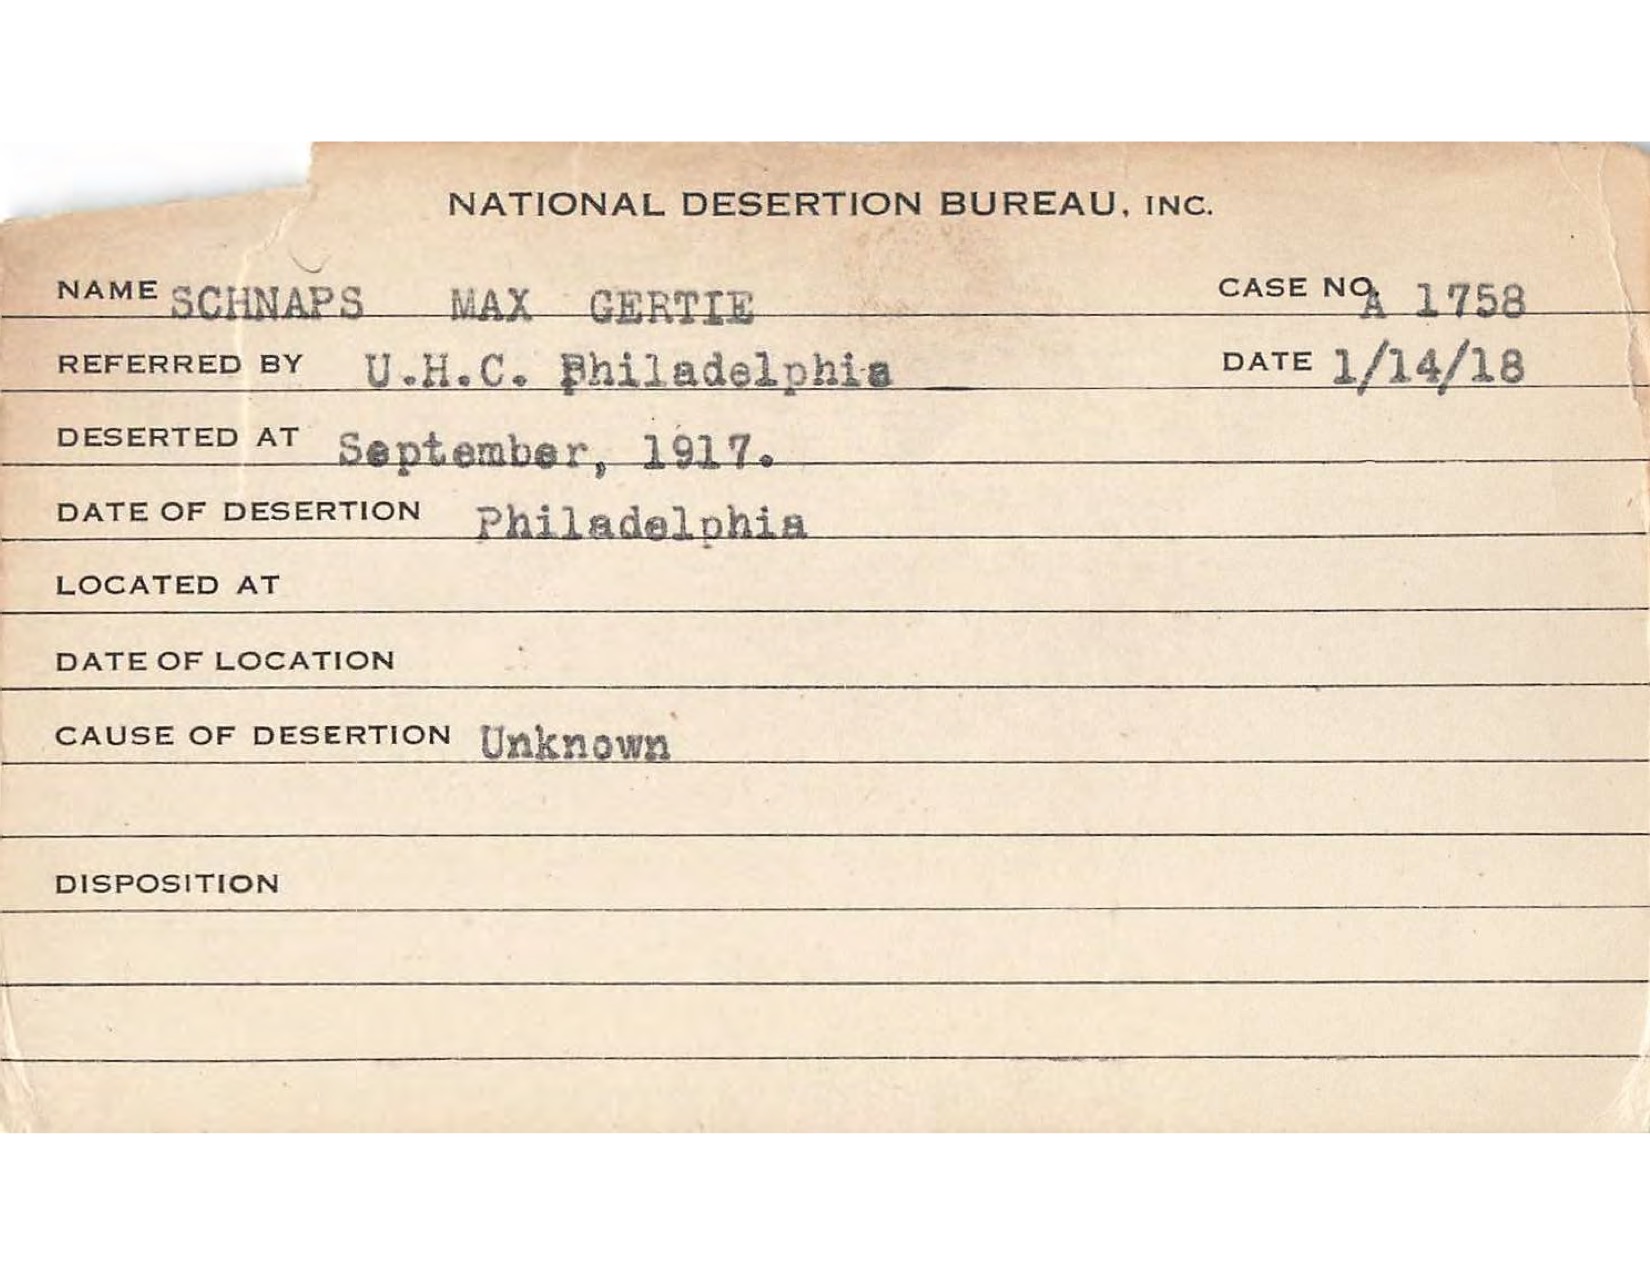 NATIONAL DESERTION BUREAU, INC.
NAME SCHNAPS MAX GERTIE CASE NO. A 1758
REFERRED BY U.H.C. Philadelphia DATE 1/14/18
DESERTED AT September, 1917.
DATE OF DESERTION Philadelphia
LOCATED AT
DATE OF LOCATION
CAUSE OF DESERTION Unknown
DISPOSITION